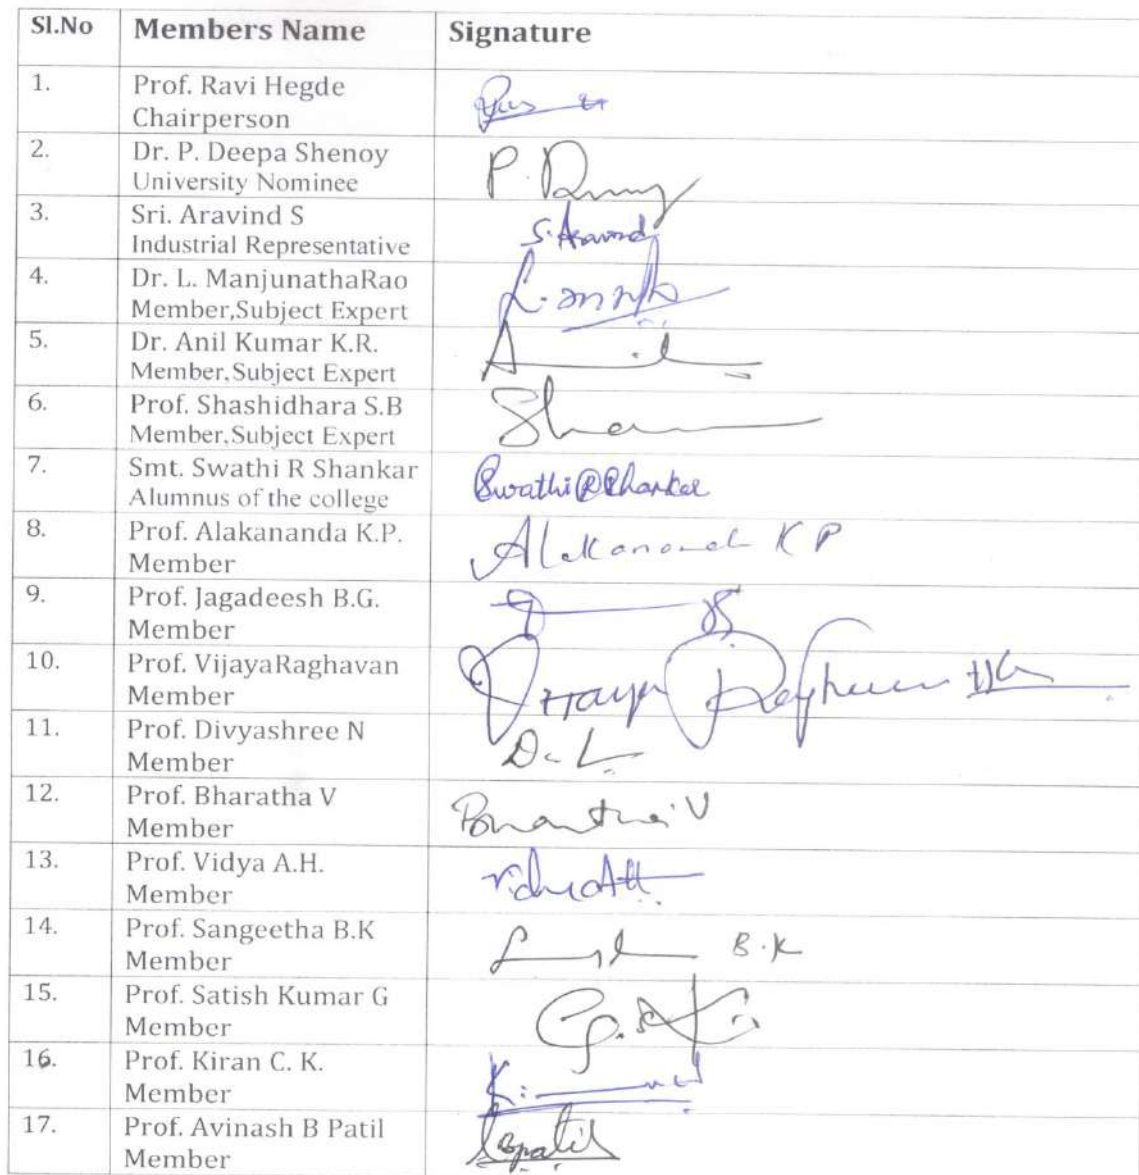 Sl.No Members Name Signature
1. Prof. Ravi Hegde
Chairperson
2. Dr. P. Deepa Shenoy
University Nominee
P.
3. Sri. Aravind S
Industrial Representative
S. Aravind
4. Dr. L. ManjunathaRao
Member,Subject Expert
L.
5. Dr. Anil Kumar K.R.
Member,Subject Expert
6. Prof. Shashidhara S.B
Member,Subject Expert
7. Smt. Swathi R Shankar
Alumnus of the college
Swathi R Shankar
8. Prof. Alakananda K.P.
Member
Alakananda K P
9. Prof. Jagadeesh B.G.
Member
10. Prof. VijayaRaghavan
Member
11. Prof. Divyashree N
Member
12. Prof. Bharatha V
Member
V
13. Prof. Vidya A.H.
Member
14. Prof. Sangeetha B.K
Member
B.K
15. Prof. Satish Kumar G
Member
16. Prof. Kiran C. K.
Member
17. Prof. Avinash B Patil
Member